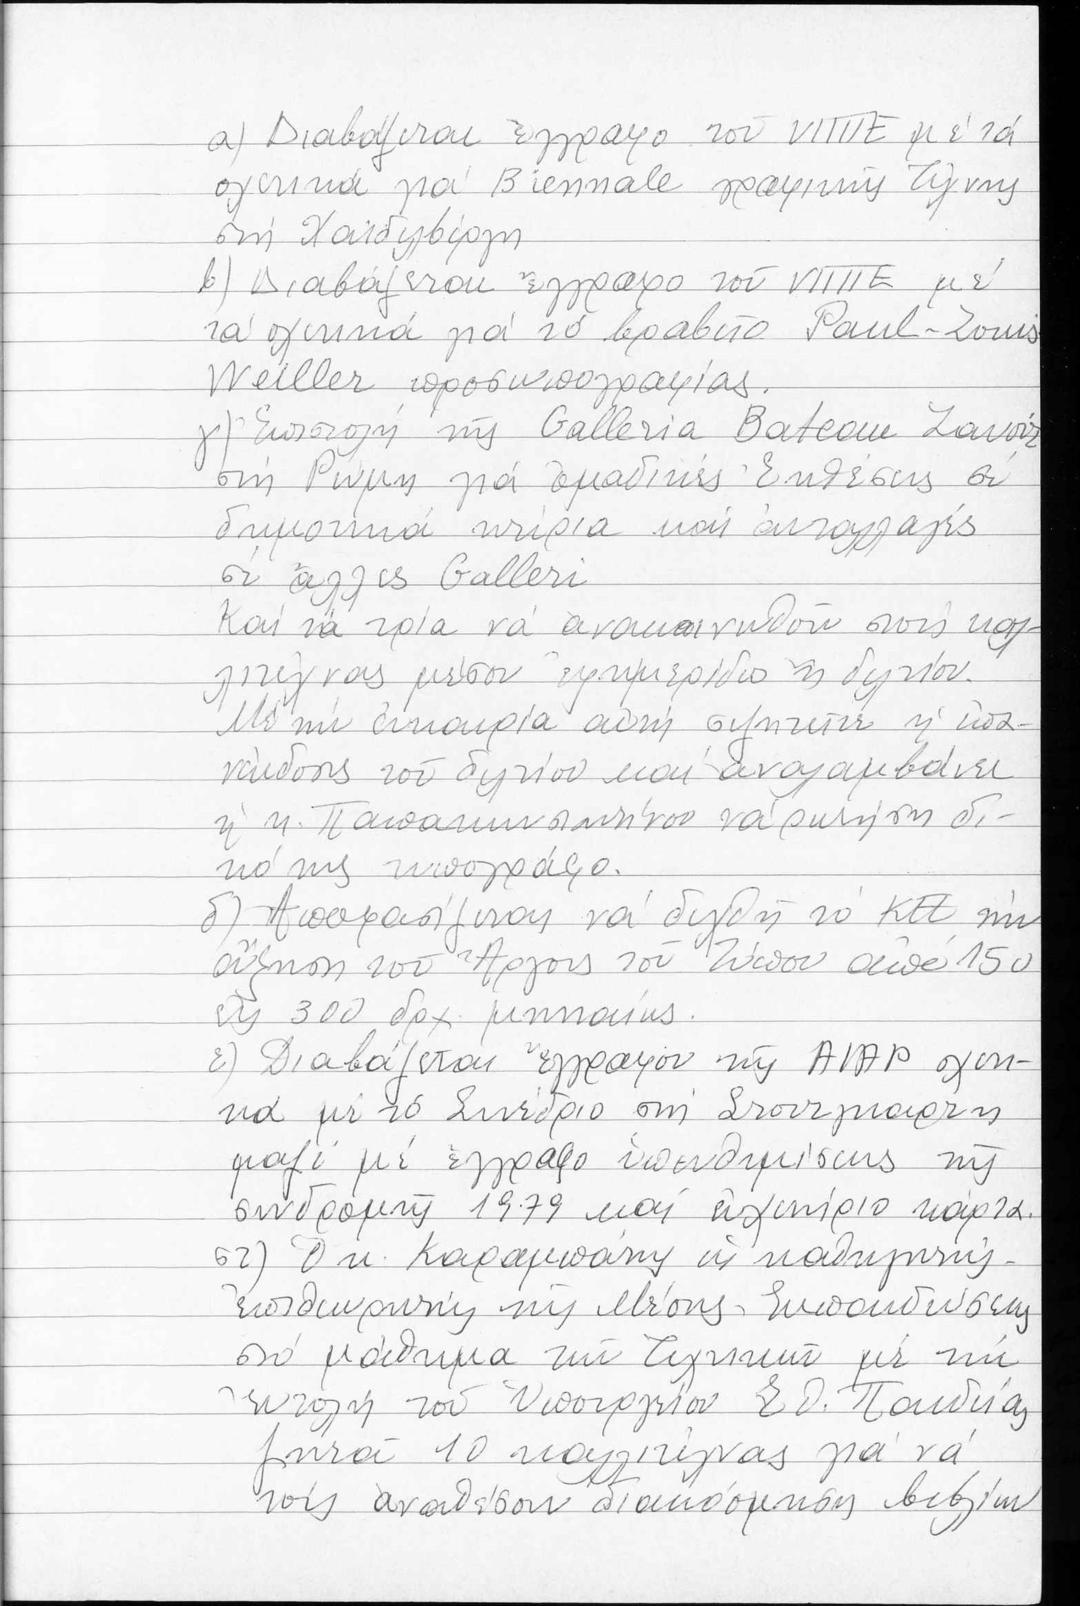 α) Διαβάζεται ἔγγραφο τοῦ ΥΠΠΕ μέ τά
σχετικά γιά Biennale γραφικῆς Τέχνης
στή Χαϊδελβέργη
β) Διαβάζεται ἔγγραφο τοῦ ΥΠΠΕ μέ
τά σχετικά γιά τό βραβεῖο Paul-Louis
Weiller προσωπογραφίας.
γ) Ἐπιστολή τῆς Galleria Bateau
στή Ρώμη γιά ὁμαδικές Ἐκθέσεις σέ
δημοτικά κτίρια καί ἀνταλλαγές
σέ ἄλλες Galleri
Καί τά τρία νά ἀνακοινωθοῦν στούς καλ-
λιτέχνας μέσον ἐφημερίδων ἤ δελτίου.
Μέ τήν εὐκαιρία αὐτή συζητεῖται ἡ ἐπα-
νέκδοσις τοῦ δελτίου καί ἀναλαμβάνει
ἡ κ. Παπακωνσταντίνου νά ρωτήση δι-
κό της τυπογράφο.
δ) Ἀποφασίζεται νά δεχθῆ τό ΚΕΕ τήν
αὔξηση τοῦ Ἄργους τοῦ Τύπου ἀπό 150
εἰς 300 δρχ. μηνιαίως.
ε) Διαβάζεται ἔγγραφον τῆς AIAP σχετι-
κά μέ τό Συνέδριο στή Στουτγκάρτη
μαζί μέ ἔγγραφο ὑπενθυμίσεως τῆς
συνδρομῆς 1979 καί εὐχετήριο κάρτα.
στ) Ὁ κ. Καραμπάτης ὡς καθηγητής-
Ἐπιθεωρητής τῆς Μέσης Ἐκπαιδεύσεως
στό μάθημα τῶν Τεχνικῶν μέ τήν
ἐντολή τοῦ Ὑπουργείου Ἐθ. Παιδείας
ζητᾶ 10 καλλιτέχνας γιά νά
τούς ἀναθέσουν διακόσμηση βιβλίων